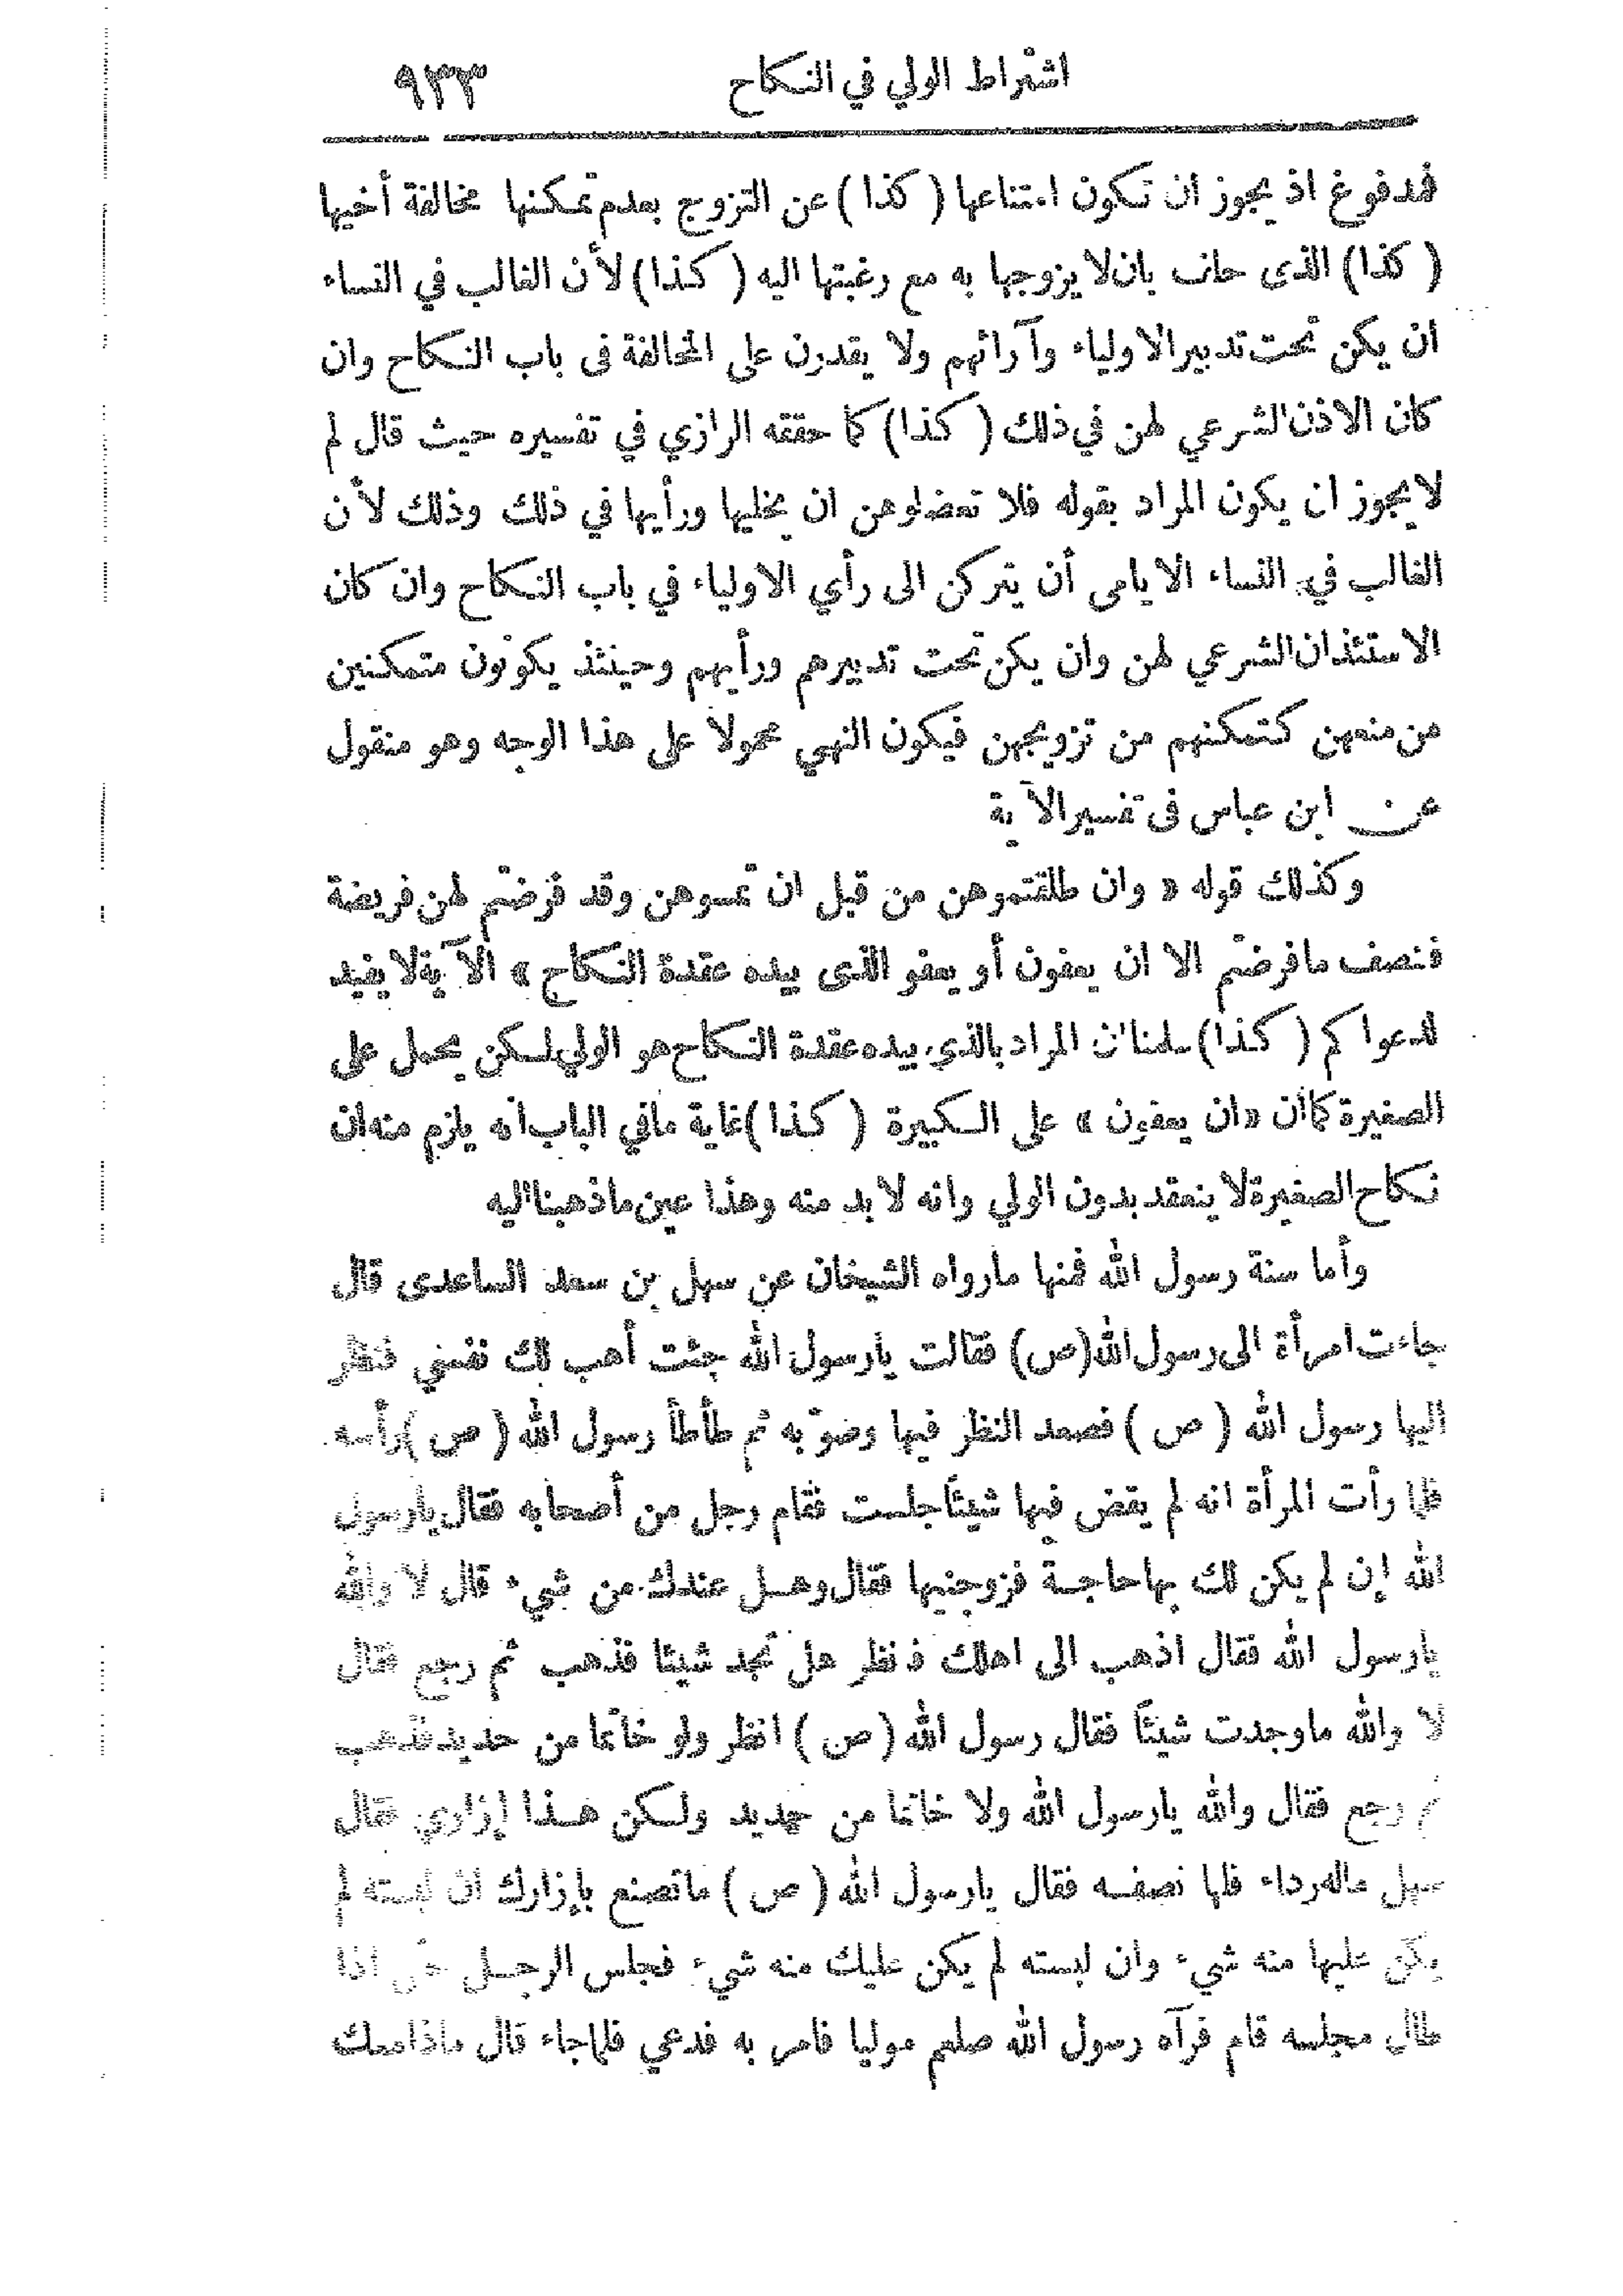 اشتراط الولي في النكاح ٩٣٣
فمدفوع اذ يجوز ان تكون امتناعها ( كذا ) عن التزوج بعدم تمكنها مخالفة أخيها
( كذا ) الذى حلف بان لا يزوجها به مع رغبتها اليه ( كذا ) لأن الغالب في النساء
ان يكن تحت تدبير الاولياء وآرائهم ولا يقدرن على المخالفة فى باب النكاح وان
كان الاذن الشرعي لهن في ذلك ( كذا ) كما حققه الرازي في تفسيره حيث قال لم
لا يجوز ان يكون المراد بقوله فلا تعضلوهن ان يخليها ورأيها في ذلك وذلك لأن
الغالب في النساء الايامى أن يتركن الى رأي الاولياء في باب النكاح وان كان
الاستئذان الشرعي لهن وان يكن تحت تدبيرهم ورأيهم وحينئذ يكونون متمكنين
من منعهن كتمكنهم من تزويجهن فيكون النهي محمولا على هذا الوجه وهو منقول
عن ابن عباس فى تفسير الآية
وكذلك قوله « وان طلقتموهن من قبل ان تمسوهن وقد فرضتم لهن فريضة
فنصف ما فرضتم الا ان يعفون أو يعفو الذى بيده عقدة النكاح » الآية لا يفيد
لدعواكم ( كذا ) سلمنا ان المراد بالذي بيده عقدة النكاح هو الولي لكن يحمل على
الصغيرة كما أن « ان يعفون » على الكبيرة ( كذا ) غاية مافي الباب انه يلزم منه ان
نكاح الصغيرة لا ينعقد بدون الولي وانه لا بد منه وهذا عين ما ذهبنا اليه
وأما سنة رسول الله فمنها مارواه الشيخان عن سهل بن سعد الساعدى قال
جاءت امرأة الى رسول الله (ص) فقالت يارسول الله جئت أهب لك نفسي فنظر
اليها رسول الله ( ص ) فصعد النظر فيها وصوّبه ثم طأطأ رسول الله ( ص ) رأسه
فلما رأت المرأة انه لم يقض فيها شيئاً جلست فقام رجل من أصحابه فقال يارسول
الله إن لم يكن لك بها حاجة فزوجنيها فقال وهل عندك من شيء قال لا والله
يارسول الله فقال اذهب الى اهلك فانظر هل تجد شيئا فذهب ثم رجع فقال
لا والله ماوجدت شيئاً فقال رسول الله ( ص ) انظر ولو خاتما من حديد فذهب
ثم رجع فقال والله يارسول الله ولا خاتما من حديد ولكن هذا إزاري فقال
سهل ماله رداء فلها نصفه فقال يارسول الله ( ص ) ماتصنع بإزارك ان لبسته لم
يكن عليها منه شيء وان لبسته لم يكن عليك منه شيء فجلس الرجل حتى اذا
طال مجلسه قام فرآه رسول الله صلعم موليا فامر به فدعي فلما جاء قال ماذا معك